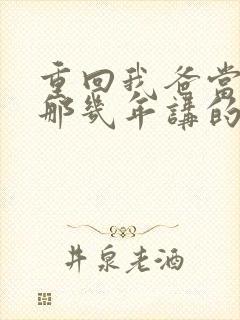 重回我爸當
那幾年講的
井泉老酒